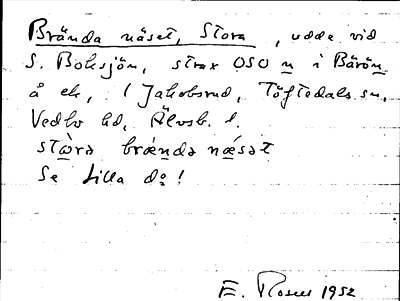 Brända näset, Stora, udde vid
S. Boksjön, strax OSO n i Bärön
å ek, ( Jakobsrud, Töftedals sn,
Vedbo hd, Älvsb. l.
stωrə brændə næsət
Se Lilla do !
E. Rosell 1952